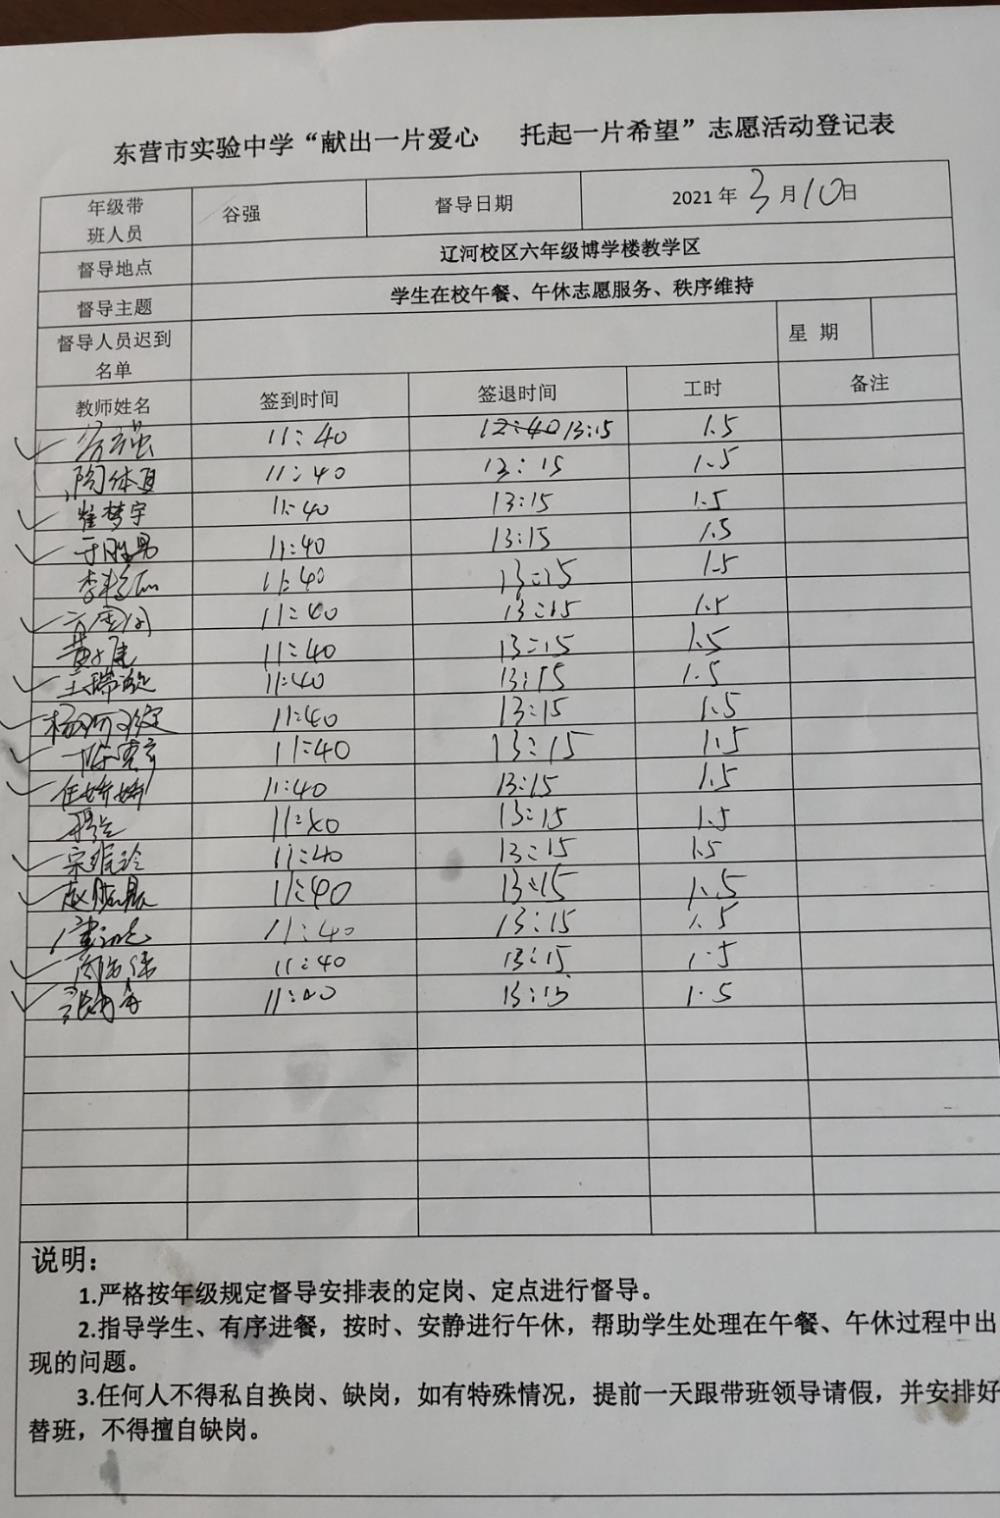 东营市实验中学“献出一片爱心 托起一片希望”志愿活动登记表
年级带班人员 谷强 督导日期 2021年3月10日
督导地点 辽河校区六年级博学楼教学区
督导主题 学生在校午餐、午休志愿服务、秩序维持
督导人员迟到名单 星 期
教师姓名 签到时间 签退时间 工时 备注
11:40 12:40 13:15 1.5
11:40 13:15 1.5
崔梦宇 11:40 13:15 1.5
于胜男 11:40 13:15 1.5
11:40 13:15 1.5
11:40 13:15 1.5
11:40 13:15 1.5
王瑞 11:40 13:15 1.5
杨 11:40 13:15 1.5
11:40 13:15 1.5
任娇娇 11:40 13:15 1.5
11:40 13:15 1.5
宋 玲 11:40 13:15 1.5
赵 11:40 13:15 1.5
11:40 13:15 1.5
11:40 13:15 1.5
张 11:40 13:15 1.5
说明：
1.严格按年级规定督导安排表的定岗、定点进行督导。
2.指导学生、有序进餐，按时、安静进行午休，帮助学生处理在午餐、午休过程中出
现的问题。
3.任何人不得私自换岗、缺岗，如有特殊情况，提前一天跟带班领导请假，并安排好
替班，不得擅自缺岗。